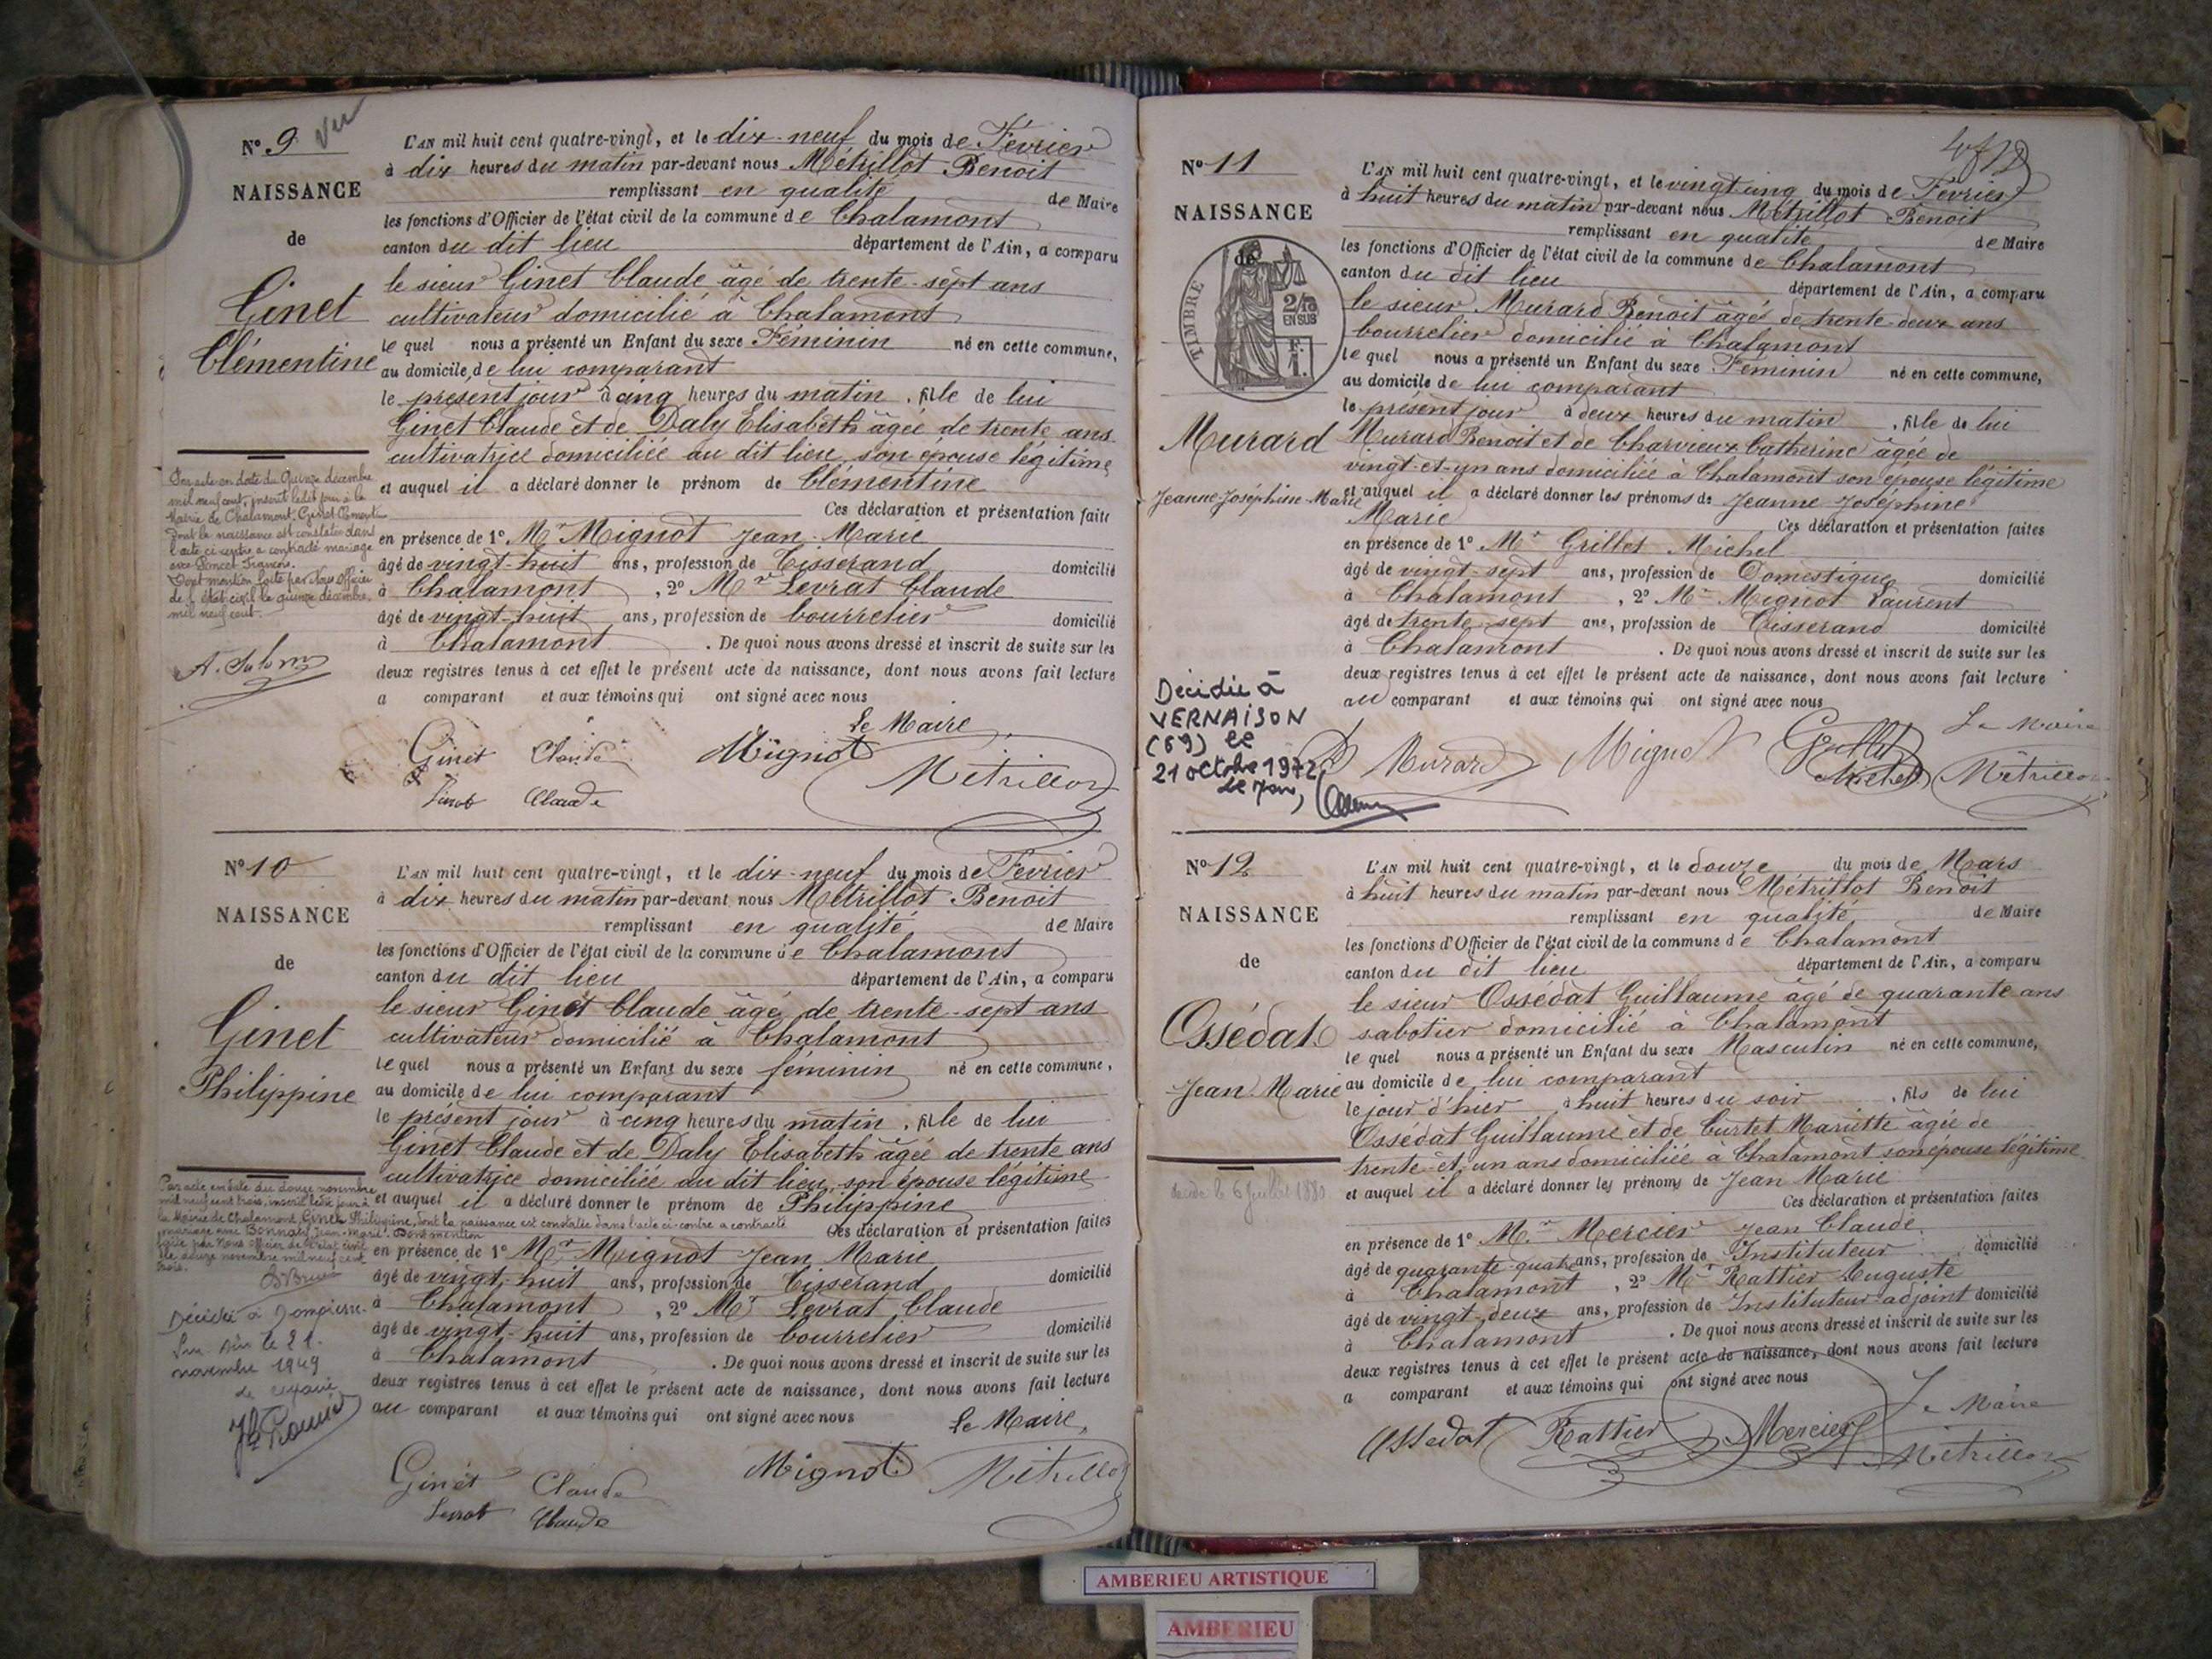 N° 9
NAISSANCE
de
Ginet
Clémentine
L'AN mil huit cent quatre-vingt, et le dix-neuf du mois de Février
à dix heures du matin par-devant nous Métrillot Benoit
remplissant en qualité de Maire
les fonctions d'Officier de l'état civil de la commune de Chalamont
canton du dit lieu département de l'Ain, a comparu
le sieur Ginet Claude âgé de trente-sept ans
cultivateur domicilié à Chalamont
le quel nous a présenté un Enfant du sexe Féminin né en cette commune,
au domicile de lui comparant
le présent jour à cinq heures du matin, fille de lui
Ginet Claude et de Daly Elisabeth âgée de trente ans
cultivatrice domiciliée au dit lieu, son épouse légitime
et auquel il a déclaré donner le prénom de Clémentine
Ces déclaration et présentation faite
en présence de 1° Mr Mignot Jean-Marie
âgé de vingt-huit ans, profession de Tisserand domicilié
à Chalamont, 2° Mr Levrat Claude
âgé de vingt-huit ans, profession de bourrelier domicilié
à Chalamont. De quoi nous avons dressé et inscrit de suite sur les
deux registres tenus à cet effet le présent acte de naissance, dont nous avons fait lecture
a comparant et aux témoins qui ont signé avec nous
Le Maire,
Ginet Claude Mignot Métrillot
Levrat Claude
Par acte en date du Quinze décembre
mil neuf cent, inscrit ledit jour à la
Mairie de Chalamont, Ginet Clément
dont la naissance est constatée dans
l'acte ci-contre a contracté mariage
avec Poncet François.
Dont mention faite par Nous Officier
de l'état-civil le quinze décembre
mil neuf cent.
N° 10
NAISSANCE
de
Ginet
Philippine
L'AN mil huit cent quatre-vingt, et le dix-neuf du mois de Février
à dix heures du matin par-devant nous Métrillot Benoit
remplissant en qualité de Maire
les fonctions d'Officier de l'état civil de la commune de Chalamont
canton du dit lieu département de l'Ain, a comparu
le sieur Ginet Claude âgé de trente-sept ans
cultivateur domicilié à Chalamont
le quel nous a présenté un Enfant du sexe féminin né en cette commune,
au domicile de lui comparant
le présent jour à cinq heures du matin, fille de lui
Ginet Claude et de Daly Elisabeth âgée de trente ans
cultivatrice domiciliée au dit lieu, son épouse légitime
et auquel il a déclaré donner le prénom de Philippine
Ces déclaration et présentation faites
en présence de 1° Mr Mignot Jean Marie
âgé de vingt-huit ans, profession de Tisserand domicilié
à Chalamont, 2° Mr Levrat Claude
âgé de vingt-huit ans, profession de bourrelier domicilié
à Chalamont. De quoi nous avons dressé et inscrit de suite sur les
deux registres tenus à cet effet le présent acte de naissance, dont nous avons fait lecture
au comparant et aux témoins qui ont signé avec nous
Le Maire,
Ginet Claude Mignot Métrillot
Levrat Claude
Par acte en date du douze novembre
mil neuf cent trois, inscrit ledit jour à
la Mairie de Chalamont, Ginet Philippine, dont la naissance est constatée dans l'acte ci-contre a contracté
mariage avec Bonnatif Jean-Marie. Dont mention
faite par Nous Officier de l'état civil
le douze novembre mil neuf cent
trois.
Décédée à Dompierre
sur le 21
novembre 1949
N° 11
NAISSANCE
de
TIMBRE
2/10
EN SUS
F.
1.
Murard
Jeanne Joséphine Marie
L'AN mil huit cent quatre-vingt, et le vingt cinq du mois de Février
à huit heures du matin par-devant nous Métrillot Benoit
remplissant en qualité de Maire
les fonctions d'Officier de l'état civil de la commune de Chalamont
canton du dit lieu département de l'Ain, a comparu
le sieur Murard Benoit âgé de trente-deux ans
bourrelier domicilié à Chalamont
le quel nous a présenté un Enfant du sexe Féminin né en cette commune,
au domicile de lui comparant
le présent jour à deux heures du matin, fille de lui
Murard Benoit et de Charvieux Catherine âgée de
vingt-et-un ans domiciliée à Chalamont son épouse légitime
et auquel il a déclaré donner les prénoms de Jeanne Joséphine
Marie Ces déclaration et présentation faites
en présence de 1° Mr Grillet Michel
âgé de vingt-sept ans, profession de Domestique domicilié
à Chalamont, 2° Mr Mignot Laurent
âgé de trente-sept ans, profession de Tisserand domicilié
à Chalamont. De quoi nous avons dressé et inscrit de suite sur les
deux registres tenus à cet effet le présent acte de naissance, dont nous avons fait lecture
au comparant et aux témoins qui ont signé avec nous
Le Maire
Murard Mignot Grillet Michel Métrillot
Décédée à
VERNAISON
(69) le
21 octobre 1972
N° 12
NAISSANCE
de
Ossédat
Jean Marie
L'AN mil huit cent quatre-vingt, et le douze du mois de Mars
à huit heures du matin par-devant nous Métrillot Benoit
remplissant en qualité de Maire
les fonctions d'Officier de l'état civil de la commune de Chalamont
canton du dit lieu département de l'Ain, a comparu
le sieur Ossédat Guillaume âgé de quarante ans
sabotier domicilié à Chalamont
le quel nous a présenté un Enfant du sexe Masculin né en cette commune,
au domicile de lui comparant
le jour d'hier à huit heures du soir, fils de lui
Ossédat Guillaume et de Curtet Mariette âgée de
trente-et-un ans domiciliée à Chalamont son épouse légitime
et auquel il a déclaré donner les prénoms de Jean Marie
Ces déclaration et présentation faites
en présence de 1° Mr Mercier Jean Claude
âgé de quarante-quatre ans, profession de Instituteur domicilié
à Chalamont, 2° Mr Rattier Auguste
âgé de vingt-deux ans, profession de Instituteur-adjoint domicilié
à Chalamont. De quoi nous avons dressé et inscrit de suite sur les
deux registres tenus à cet effet le présent acte de naissance, dont nous avons fait lecture
a comparant et aux témoins qui ont signé avec nous
Le Maire
Ossedat Rattier Mercier Métrillot
décédé le 6 Juillet 1880
AMBERIEU ARTISTIQUE
AMBERIEU